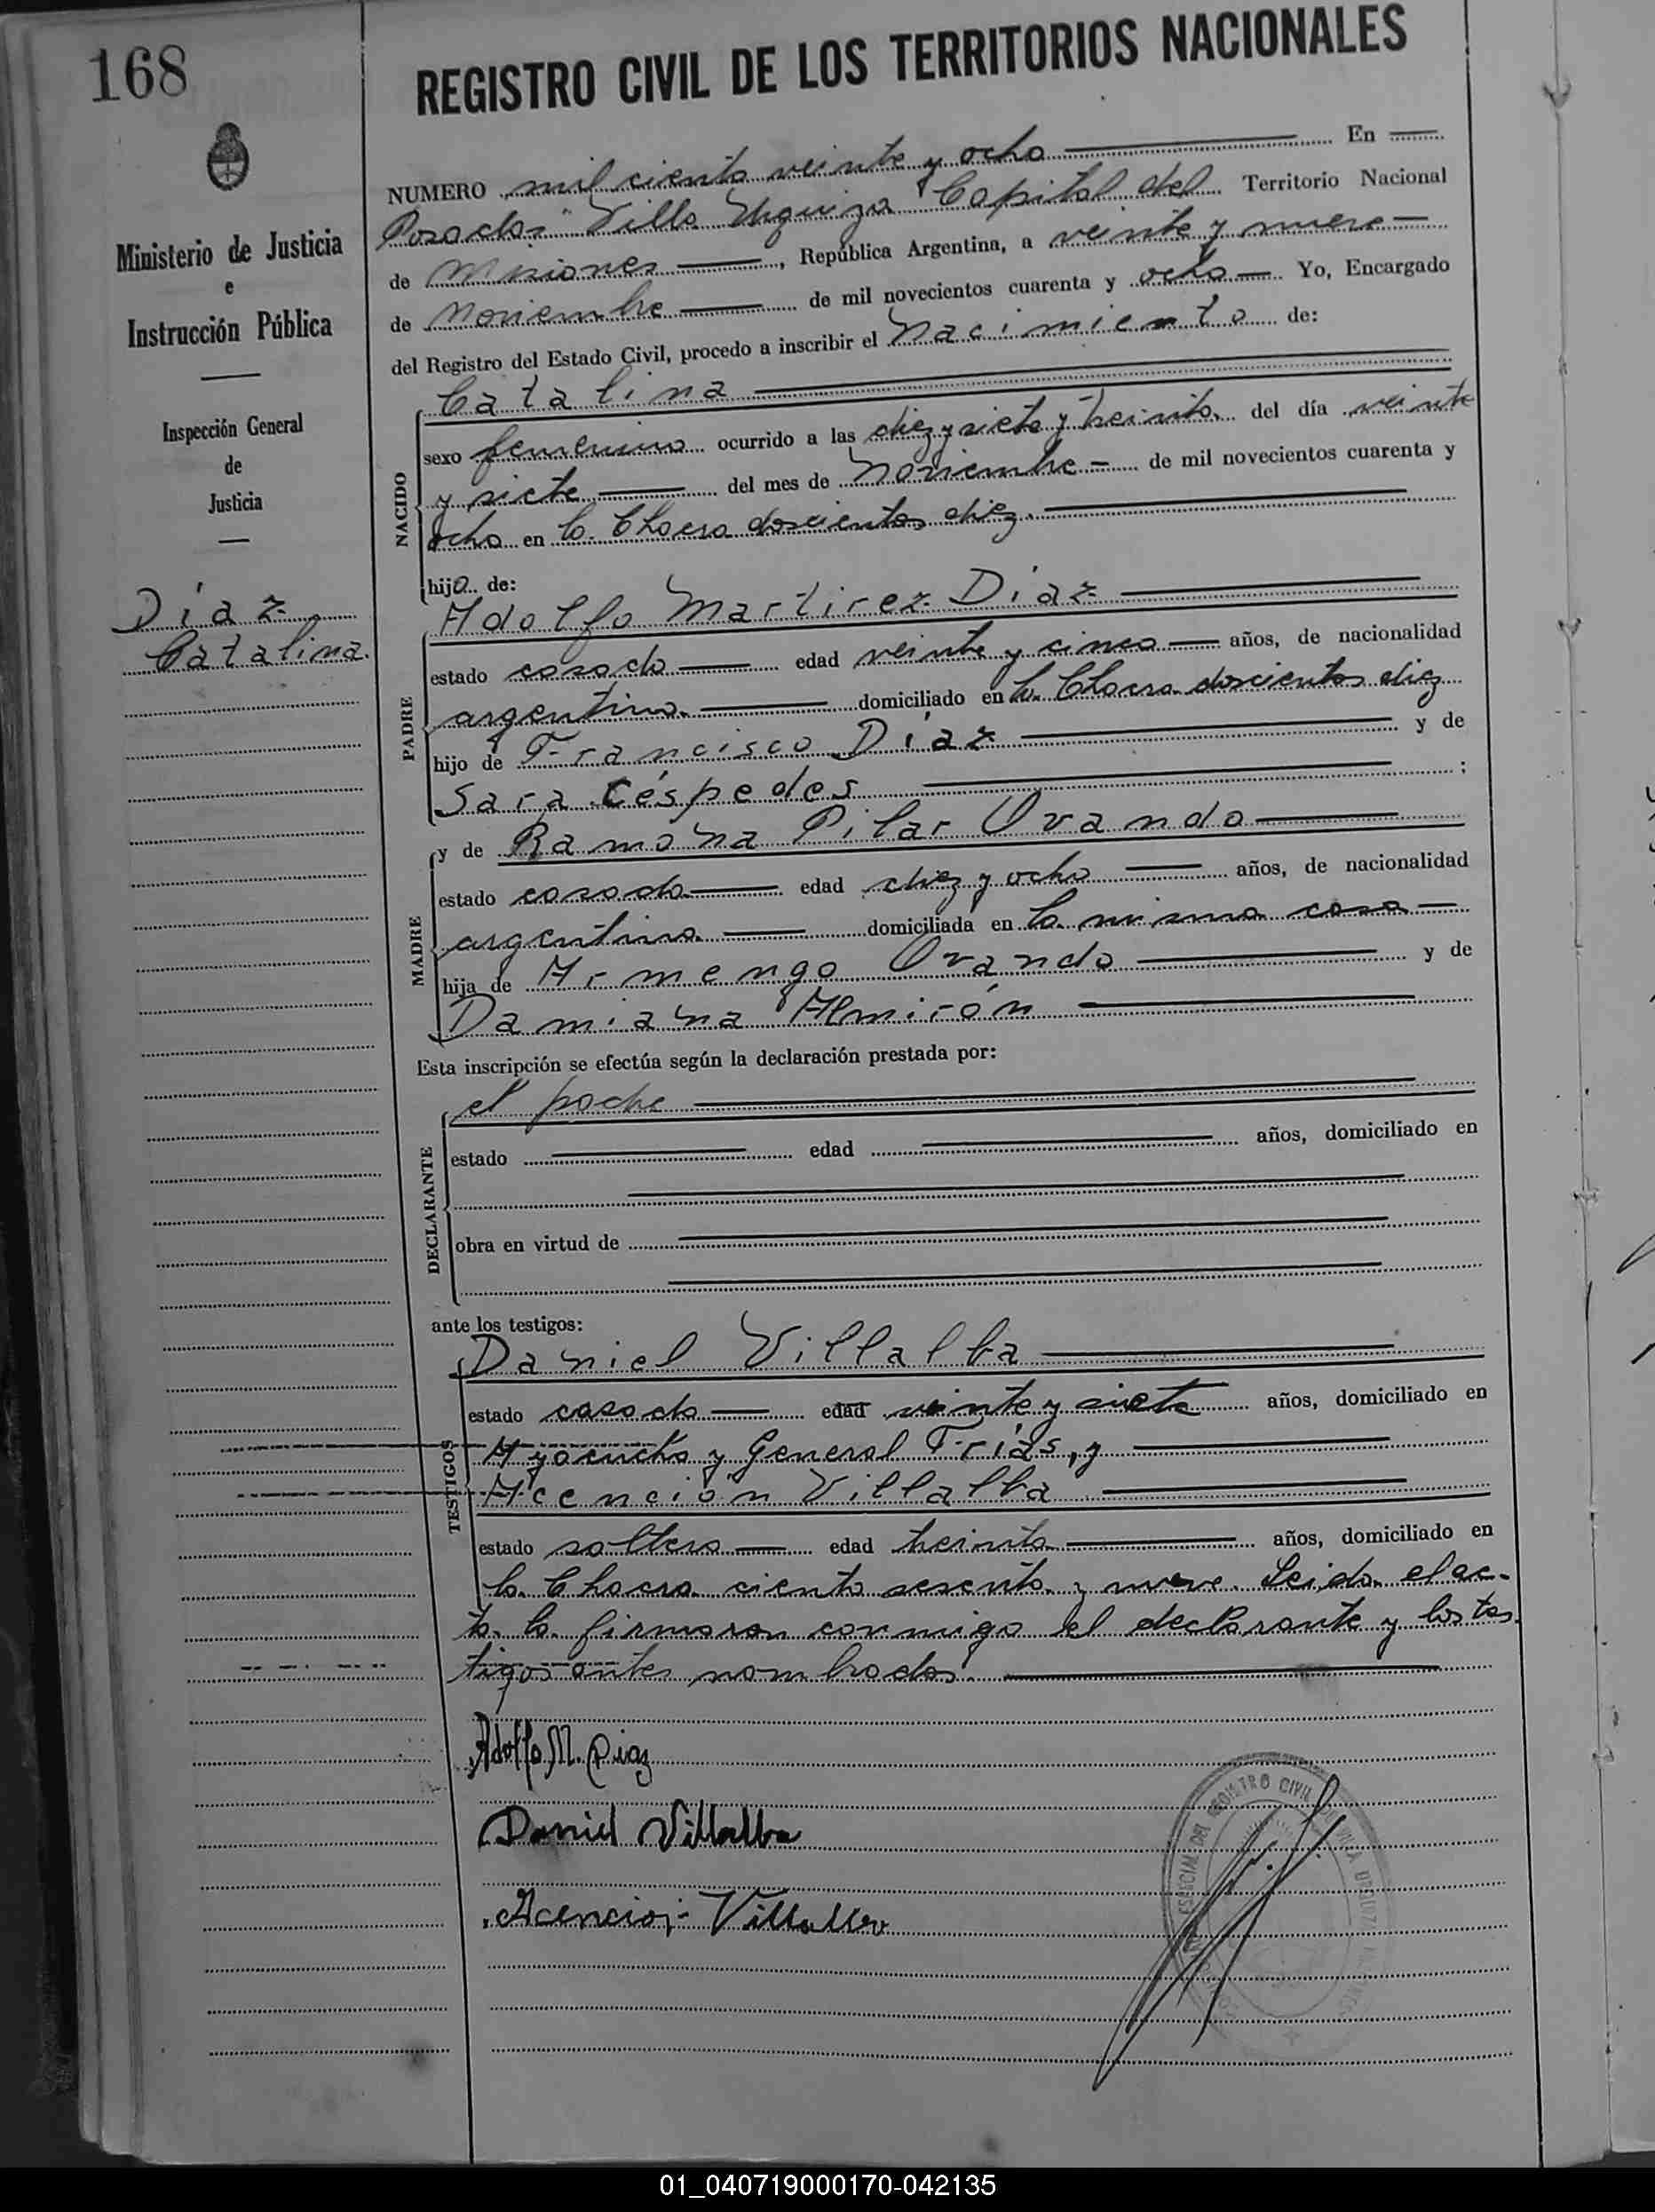 168
REGISTRO CIVIL DE LOS TERRITORIOS NACIONALES
Ministerio de Justicia
e
Instrucción Pública
Inspección General
de
Justicia
Díaz
Catalina.
NUMERO mil ciento veinte y ocho En
Posadas "Villa Urquiza" Capital del Territorio Nacional
de Misiones, República Argentina, a veinte y nueve
de Noviembre de mil novecientos cuarenta y ocho Yo, Encargado
del Registro del Estado Civil, procedo a inscribir el Nacimiento de:
NACIDO
Catalina
sexo femenino ocurrido a las diez y siete y treinta del día veinte
y siete del mes de Noviembre de mil novecientos cuarenta y
ocho en la Chacra doscientos diez.
hija de:
PADRE
Adolfo Martirez Díaz
estado casado edad veinte y cinco años, de nacionalidad
argentina domiciliado en la Chacra doscientos diez
hijo de Francisco Díaz y de
Sara Céspedes ;
MADRE
y de Ramona Pilar Ovando
estado casada edad diez y ocho años, de nacionalidad
argentina domiciliada en la misma casa
hija de Armengo Ovando y de
Damiana Almirón
Esta inscripción se efectúa según la declaración prestada por:
DECLARANTE
el padre
estado edad años, domiciliado en
obra en virtud de
ante los testigos:
TESTIGOS
Daniel Villalba
estado casado edad veinte y siete años, domiciliado en
Ayacucho y General Frías, y
Acención Villalba
estado soltero edad treinta años, domiciliado en
la Chacra ciento sesenta y nueve. Leida el ac-
ta la firmaron conmigo el declarante y los tes
tigos antes nombrados.
Adolfo M. Diaz
Daniel Villalba
Acencion Villalba
REGISTRO CIVIL VILLA URQUIZA
01_040719000170-042135